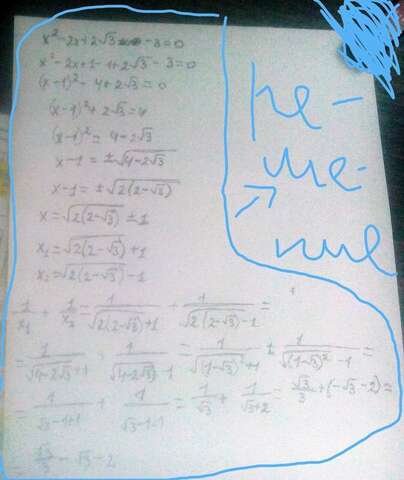 x² - 2x + 2√3 - 3 = 0
x² - 2x + 1 - 1 + 2√3 - 3 = 0
(x-1)² - 4 + 2√3 = 0
(x-1)² + 2√3 = 4
(x-1)² = 4 - 2√3
x - 1 = ±√(4-2√3)
x - 1 = ±√(2(2-√3))
x = √(2(2-√3)) ± 1
x₁ = √(2(2-√3)) + 1
x₂ = √(2(2-√3)) - 1
ре-
ше-
ние
1/x₁ + 1/x₂ = 1/(√(2(2-√3)) + 1) + 1/(√(2(2-√3)) - 1) =
= 1/(√(4-2√3) + 1) + 1/(√(4-2√3) - 1) = 1/(√(1-√3)² + 1) + 1/(√(1-√3)² - 1) =
= 1/(√3-1+1) + 1/(√3-1-1) = 1/√3 + 1/(√3+2) = √3/3 + (-√3-2) =
√3/3 - √3 - 2